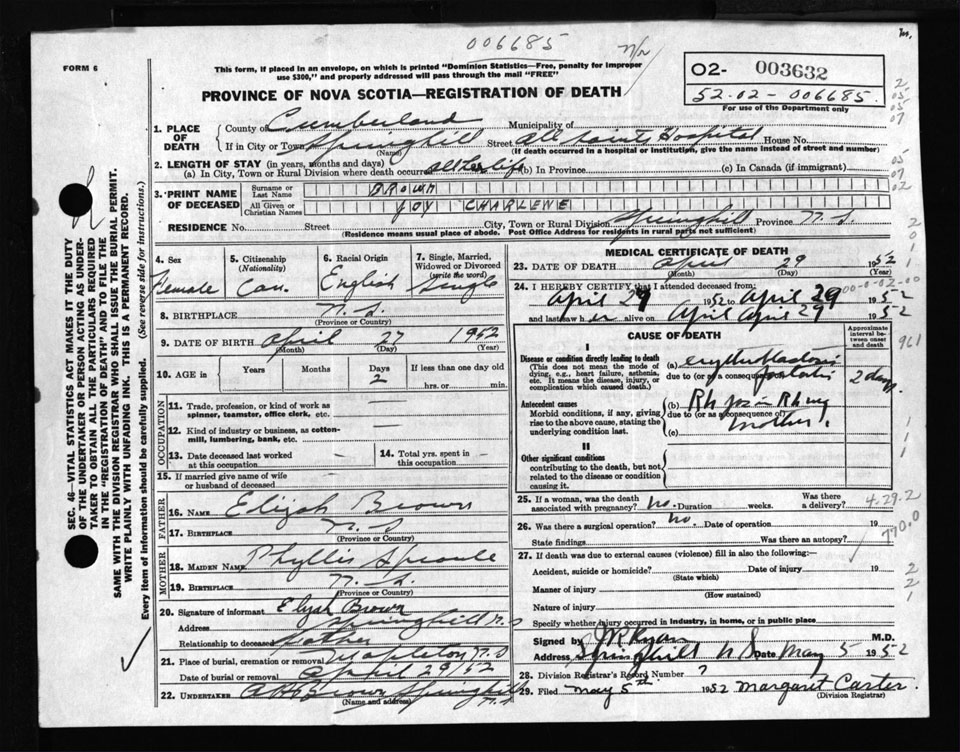 006685
n/r
FORM 6
This form, if placed in an envelope, on which is printed "Dominion Statistics—Free, penalty for improper
use $300," and properly addressed will pass through the mail "FREE"
O2- 003632
52-02-006685.
For use of the Department only
PROVINCE OF NOVA SCOTIA—REGISTRATION OF DEATH
1. PLACE OF DEATH
County of Cumberland Municipality of
If in City or Town Springhill Street All Saints Hospital House No.
(Name) (If death occurred in a hospital or institution, give the name instead of street and number)
2. LENGTH OF STAY (in years, months and days)
(a) In City, Town or Rural Division where death occurred all her life (b) In Province (c) In Canada (if immigrant)
3. PRINT NAME OF DECEASED
Surname or Last Name BROWN
All Given or Christian Names JOY CHARLENE
RESIDENCE No. Street City, Town or Rural Division Springhill Province N.S.
(Residence means usual place of abode. Post Office Address for residents in rural parts not sufficient)
4. Sex Female
5. Citizenship (Nationality) Can.
6. Racial Origin English
7. Single, Married, Widowed or Divorced (write the word) Single
8. BIRTHPLACE N.S.
(Province or Country)
9. DATE OF BIRTH April 27 1952
(Month) (Day) (Year)
10. AGE in Years Months Days 2 If less than one day old hrs. or min.
OCCUPATION
11. Trade, profession, or kind of work as spinner, teamster, office clerk, etc. —
12. Kind of industry or business, as cotton-mill, lumbering, bank, etc. —
13. Date deceased last worked at this occupation —
14. Total yrs. spent in this occupation —
15. If married give name of wife or husband of deceased
FATHER
16. NAME Elijah Brown
17. BIRTHPLACE N.S
(Province or Country)
MOTHER
18. MAIDEN NAME Phyllis Sproule
19. BIRTHPLACE N.S.
(Province or Country)
20. Signature of informant Elijah Brown
Address Springhill N.S
Relationship to deceased Father
21. Place of burial, cremation or removal Mapleton N.S
Date of burial or removal April 29/52
22. UNDERTAKER Brown Springhill N.S
(Name and address)
MEDICAL CERTIFICATE OF DEATH
23. DATE OF DEATH April 29 1952
(Month) (Day) (Year)
24. I HEREBY CERTIFY that I attended deceased from:
April 29 1952 to April 29 1952
and last saw her alive on April April 29 1952
CAUSE OF DEATH
Approximate interval between onset and death
I
Disease or condition directly leading to death
(This does not mean the mode of dying, e.g., heart failure, asthenia, etc. It means the disease, injury, or complication which caused death.)
(a) erythroblastosis foetalis 2 days.
due to (or as a consequence of)
Antecedent causes
Morbid conditions, if any, giving rise to the above cause, stating the underlying condition last.
(b) Rh pos in Rh neg mother.
due to (or as a consequence of)
(c)
II
Other significant conditions
contributing to the death, but not related to the disease or condition causing it.
25. If a woman, was the death associated with pregnancy? No. Duration weeks. Was there a delivery?
26. Was there a surgical operation? No. Date of operation 19
State findings Was there an autopsy?
27. If death was due to external causes (violence) fill in also the following:
Accident, suicide or homicide? Date of injury 19
(State which)
Manner of injury
(How sustained)
Nature of injury
Specify whether injury occurred in industry, in home, or in public place
Signed by JR Ryan M.D.
Address Springhill N S Date May 5 1952
28. Division Registrar's Record Number ?
29. Filed May 5th 1952 Margaret Carter.
(Division Registrar)
SEC. 46—VITAL STATISTICS ACT MAKES IT THE DUTY
OF THE UNDERTAKER OR PERSON ACTING AS UNDER-
TAKER TO OBTAIN ALL THE PARTICULARS REQUIRED
IN THE "REGISTRATION OF DEATH" AND TO FILE THE
SAME WITH THE DIVISION REGISTRAR WHO SHALL ISSUE THE BURIAL PERMIT.
WRITE PLAINLY WITH UNFADING INK. THIS IS A PERMANENT RECORD.
Every item of information should be carefully supplied. (See reverse side for instructions.)
00-0-02-00
961
4.29.2
770.0